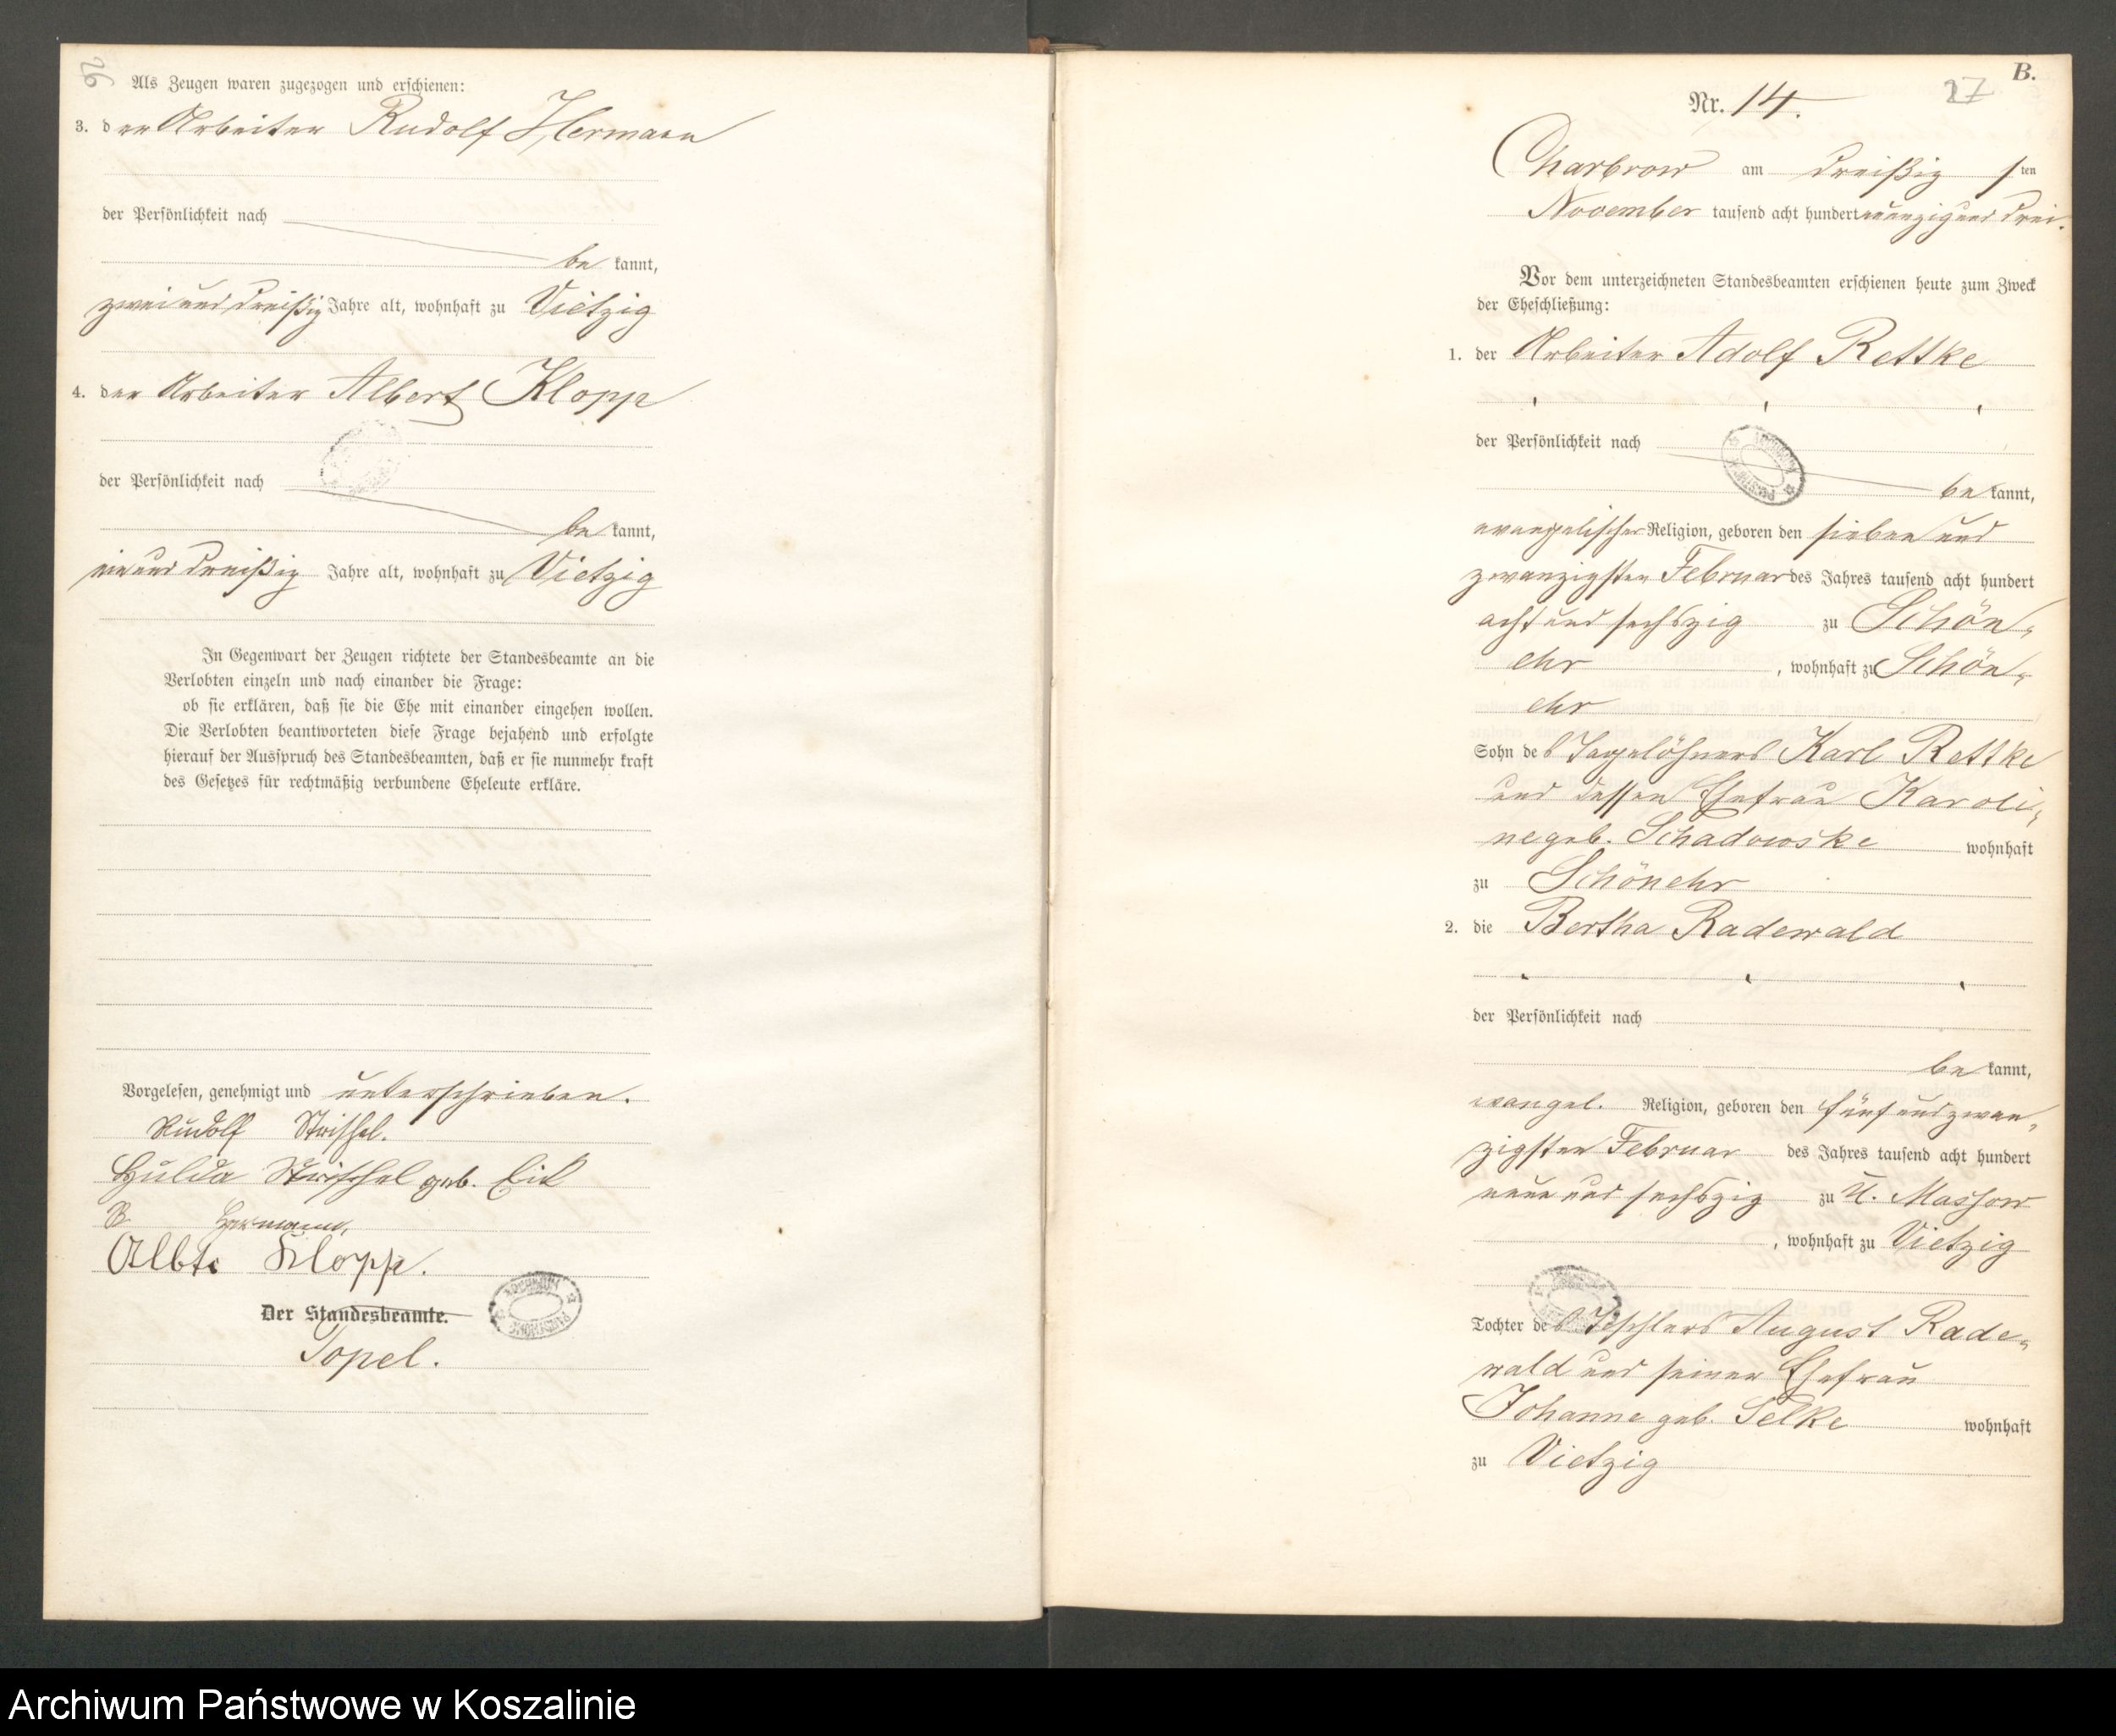 26
Als Zeugen waren zugezogen und erschienen:
3. der Arbeiter Rudolf Hermann
der Persönlichkeit nach
be kannt,
zweiunddreißig Jahre alt, wohnhaft zu Vietzig
4. der Arbeiter Albert Klopp
der Persönlichkeit nach
be kannt,
einunddreißig Jahre alt, wohnhaft zu Vietzig
In Gegenwart der Zeugen richtete der Standesbeamte an die
Verlobten einzeln und nach einander die Frage:
ob sie erklären, daß sie die Ehe mit einander eingehen wollen.
Die Verlobten beantworteten diese Frage bejahend und erfolgte
hierauf der Ausspruch des Standesbeamten, daß er sie nunmehr kraft
des Gesetzes für rechtmäßig verbundene Eheleute erkläre.
Vorgelesen, genehmigt und unterschrieben.
Rudolf
Hulda geb.
Hermann
Albt. Klopp.
Der Standesbeamte.
Topel.
B.
27
Nr. 14.
Charbrow am dreißig sten
November tausend acht hundert neunzig und drei.
Vor dem unterzeichneten Standesbeamten erschienen heute zum Zweck
der Eheschließung:
1. der Arbeiter Adolf Rettke
der Persönlichkeit nach
be kannt,
evangelischer Religion, geboren den sieben und
zwanzigsten Februar des Jahres tausend acht hundert
acht und sechszig zu Schön-
ehr , wohnhaft zu Schön-
ehr
Sohn des Tagelöhners Karl Rettke
und dessen Ehefrau Karoli-
ne geb. Schadowske wohnhaft
zu Schönehr
2. die Bertha Radewald
der Persönlichkeit nach
be kannt,
evangel. Religion, geboren den fünfundzwan-
zigsten Februar des Jahres tausend acht hundert
neun und sechszig zu N. Massow
, wohnhaft zu Vietzig
Tochter des Tischlers August Rade-
wald und seiner Ehefrau
Johanne geb. Selke wohnhaft
zu Vietzig
Archiwum Państwowe w Koszalinie